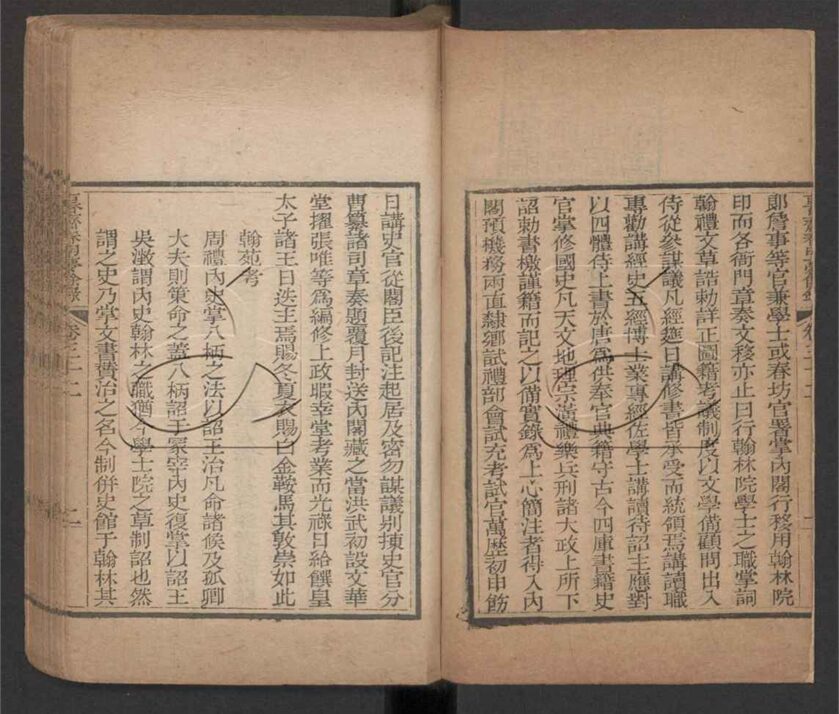 郎詹事等官兼學士或春坊官署掌內閣行移用翰林院
印而各衙門章奏文移亦止曰行翰林院學士之職掌詞
翰禮文草誥勅詳正圖籍考議制度以文學備顧問出入
侍從參謀議凡經筵日講修書皆承受而統領焉講讀職
專勸講經史五經博士業專經佐學士講讀待詔主應對
以四體侍上書於唐為供奉官典籍守古今四庫書籍史
官掌修國史凡天文地理宗潢禮樂兵刑諸大政上所下
詔勅書檄謹籍而記之以備實錄為上心簡注者得入內
閣預機務兩直隸鄉試禮部會試充考試官萬歷初申飭
春明夢餘錄 卷三十二 二
日講史官從閣臣後記注起居及密勿謀議别揀史官分
曹纂諸司章奏題覆月封送內閣藏之當洪武初設文華
堂擢張唯等為編修上政暇幸堂考業而光祿日給饌皇
太子諸王日迭王焉賜冬夏衣賜白金鞍馬其敦崇如此
翰苑考
周禮內史掌八柄之法以詔王治凡命諸侯及孤卿
大夫則策命之蓋八柄詔于冢宰內史復掌以詔王
吳澂謂內史翰林之職猶今學士院之草制詔也然
謂之史乃掌文書贊治之名今制併史館于翰林其